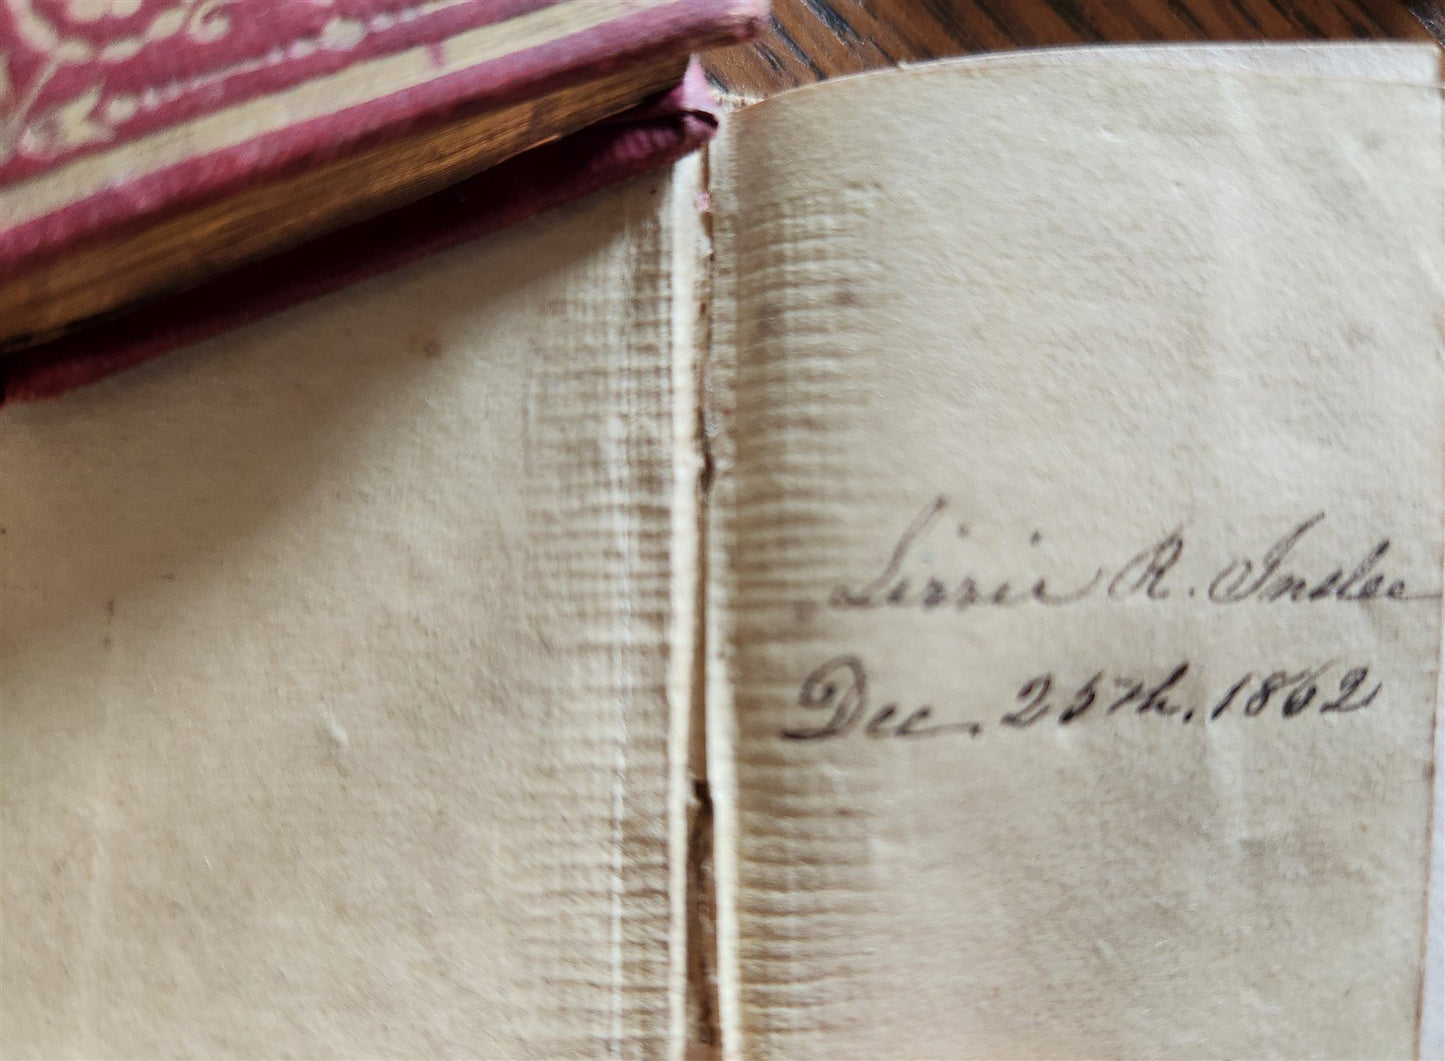 Lizzie R. Inslee
Dec. 25th. 1862